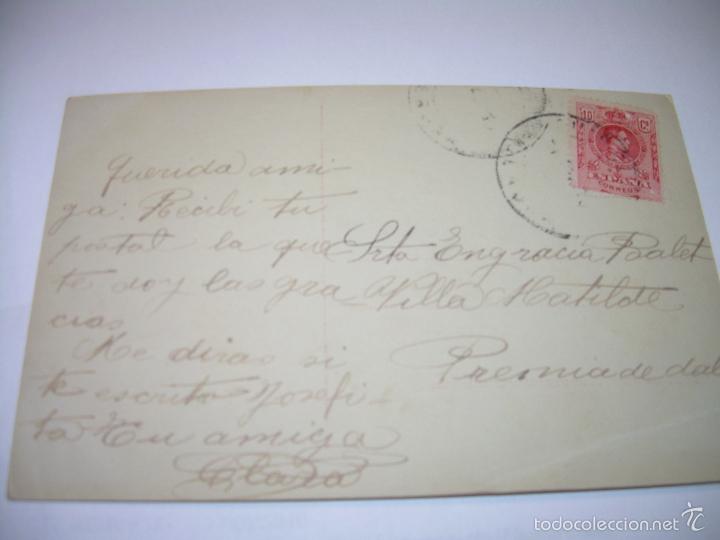 Querida ami-
ga: Recibi tu
postal la que
te doy las gra-
cias
Me diras si
te escrito Josefi-
ta Tu amiga
Clara
10 Cs
ESPAÑA
CORREOS
Srta Engracia
Villa Matilde
Premia de dal
todocoleccion
© todocoleccion.net